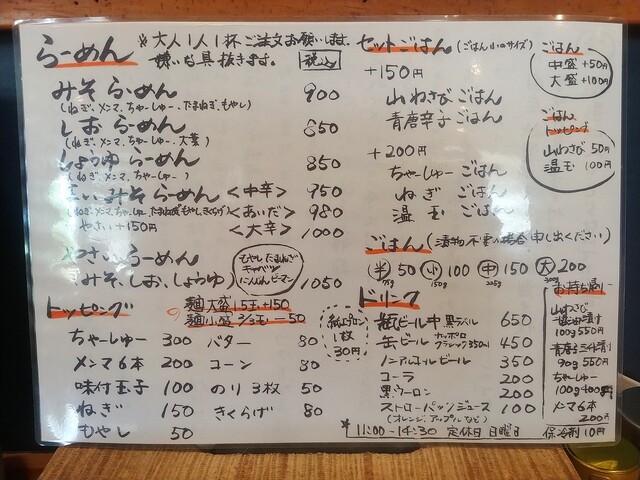 らーめん
※大人1人1杯ご注文お願いします。
嫌いな具抜きます。 税込
みそらーめん 900
(ねぎ、メンマ、ちゃーしゅー、たまねぎ、もやし)
しおらーめん 850
(ねぎ、メンマ、ちゃーしゅー、大葉)
しょうゆらーめん 850
(ねぎ、メンマ、ちゃーしゅー)
辛いみそらーめん <中辛> 950
(ねぎ、メンマ、ちゃーしゅー、たまねぎ、もやし、きくらげ) <あいだ> 980
やさい+150円 <大辛> 1000
やさいらーめん
(みそ、しお、しょうゆ) 1050
もやし たまねぎ
キャベツ
にんじん ピーマン
トッピング
麺大盛 1.5玉 +150
麺小盛 -50
ちゃーしゅー 300
メンマ6本 200
味付玉子 100
ねぎ 150
もやし 50
バター 80
コーン 80
のり3枚 50
きくらげ 80
紙エプロン
1枚
30円
セットごはん(ごはん小のサイズ)
+150円
山わさびごはん
青唐辛子ごはん
+200円
ちゃーしゅーごはん
ねぎごはん
温玉ごはん
ごはん
中盛+50円
大盛+100円
ごはん
トッピング
山わさび 50円
温玉 100円
ごはん(漬物不要の場合申し出ください)
半50 小100 中150 大200
150g
ドリンク
瓶ビール中 黒ラベル 650
缶ビール サッポロ クラシック350ml 450
ノンアルコールビール 350
コーラ 200
黒ウーロン 200
ストローパックジュース 100
(オレンジ、アップルなど)
お持ち帰り
山わさび
醤油漬け
100g 550円
青唐三升漬け
90g 550円
ちゃーしゅー
メンマ6本
200円
保冷剤10円
*11:00-14:30 定休日 日曜日